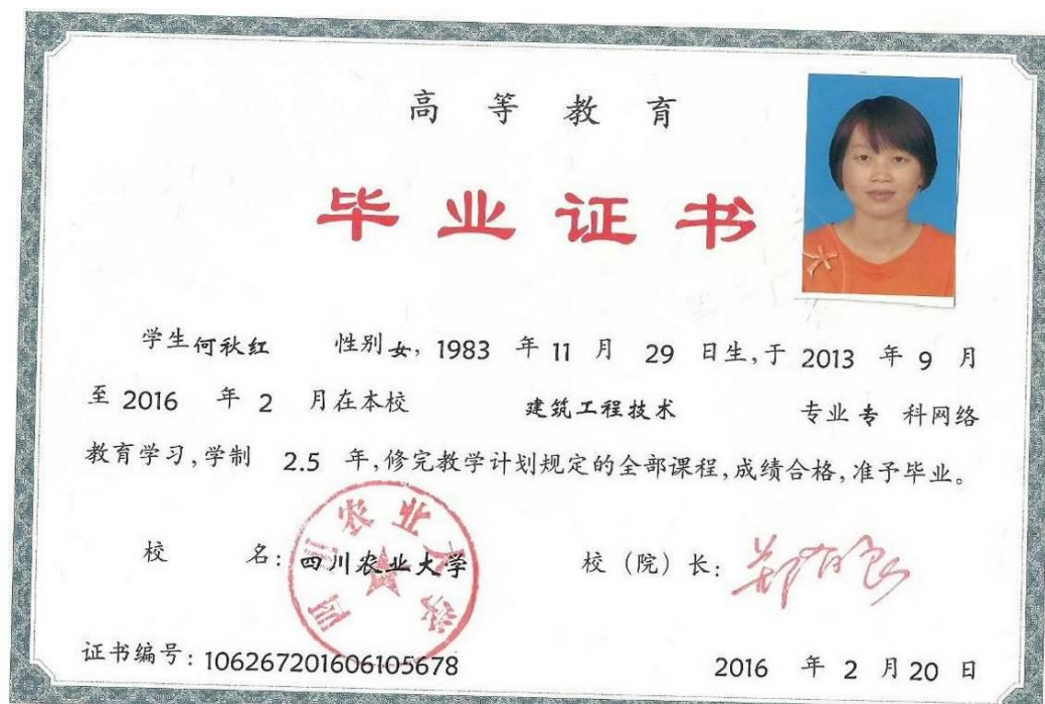 高等教育
毕业证书
学生何秋红 性别女，1983 年 11 月 29 日生，于 2013 年 9 月
至 2016 年 2 月在本校 建筑工程技术 专业 专 科网络
教育学习，学制 2.5 年，修完教学计划规定的全部课程，成绩合格，准予毕业。
校 名：四川农业大学 校（院）长：郑有良
四川农业大学
证书编号：106267201606105678 2016 年 2 月 20 日